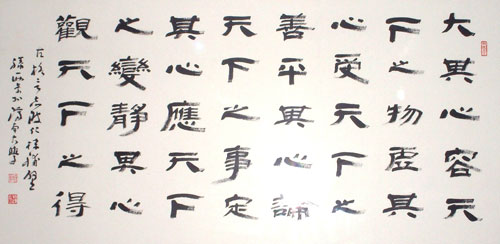 大其心容天
下之物虛其
心受天下之
善平其心論
天下之事定
其心應天下
之變靜其心
觀天下之得